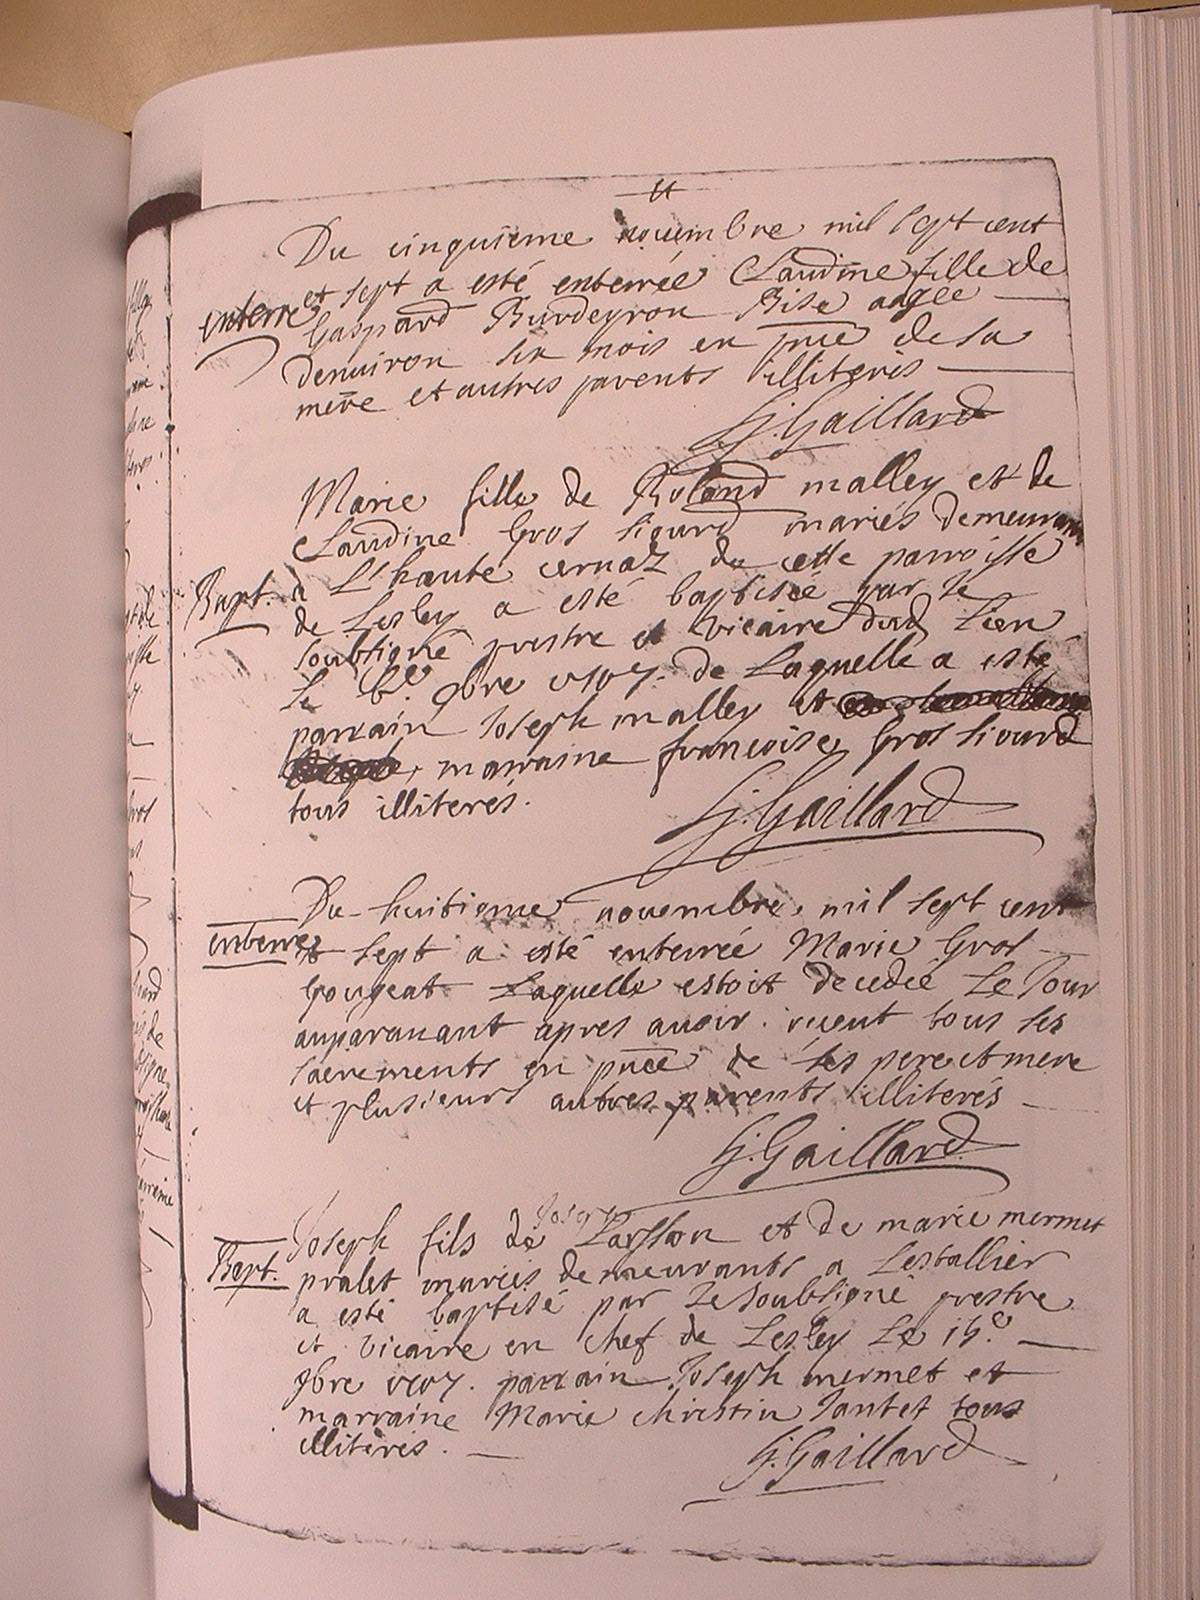 Du cinquieme novembre mil sept cent
enterré et sept a esté enterrée Claudine fille de
Gaspard Burdeyron Bise aagée
denuiron six mois en pnce de sa
mere et autres parents illiterés
G. Gaillard
Marie fille de Roland malley et de
Claudine Gros siourd mariés demeurans
Bapt. a L'haute cernaz de cette parroisse
de Lesley a esté baptisée par Le
soubsigné prestre et vicaire dud Lieu
Le 6e. 9bre 1707. de Laquelle a esté
parrain Joseph malley et
marraine francoise Gros siourd
tous illiterés.
G. Gaillard
Du huitieme novembre, mil sept cent
enterrée et sept a esté enterrée Marie Gros
Gougeat Laquelle estoit decedée Le Jour
auparauant apres auoir receut tous ses
sacrements en pnce de ses pere et mere
et plusieurs autres parents illiterés
G. Gaillard
Joseph
Joseph fils de et de marie mermet
Bapt. pralet mariés demeurants a Lestallier
a esté baptisé par Le soubsigné prestre
et vicaire en chef de Lesley Le
9bre 1707. parrain Joseph mermet et
marraine Marie christin Jantet tous
illiterés.
G. Gaillard